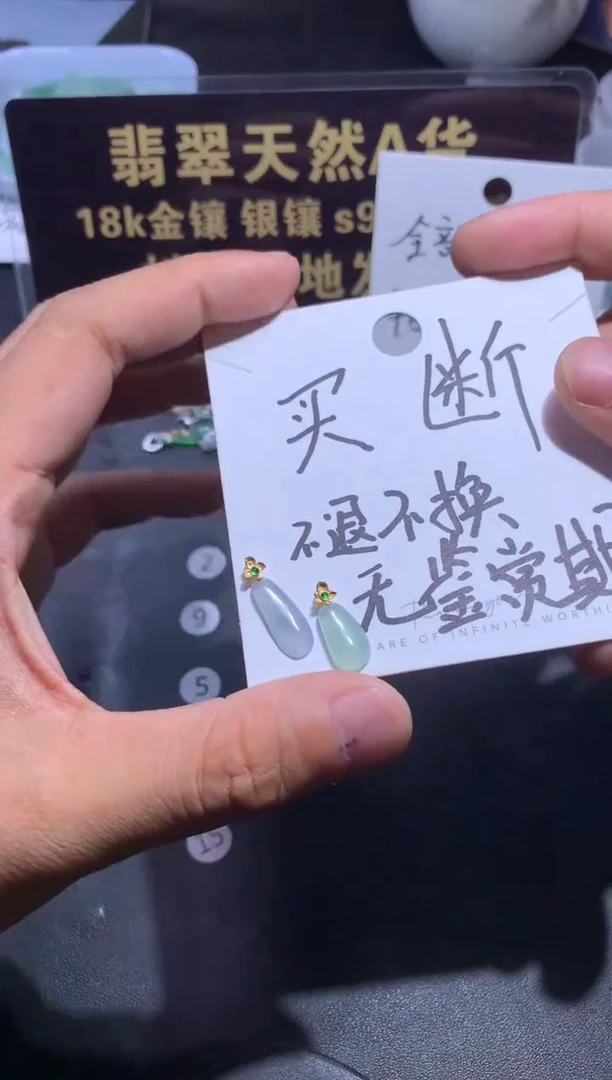 翡翠天然A货
18k金镶 银镶 s9
地发
全
买断
不退不换、
无鉴赏期
ARE OF INFINITE WORTH
2
9
5
15